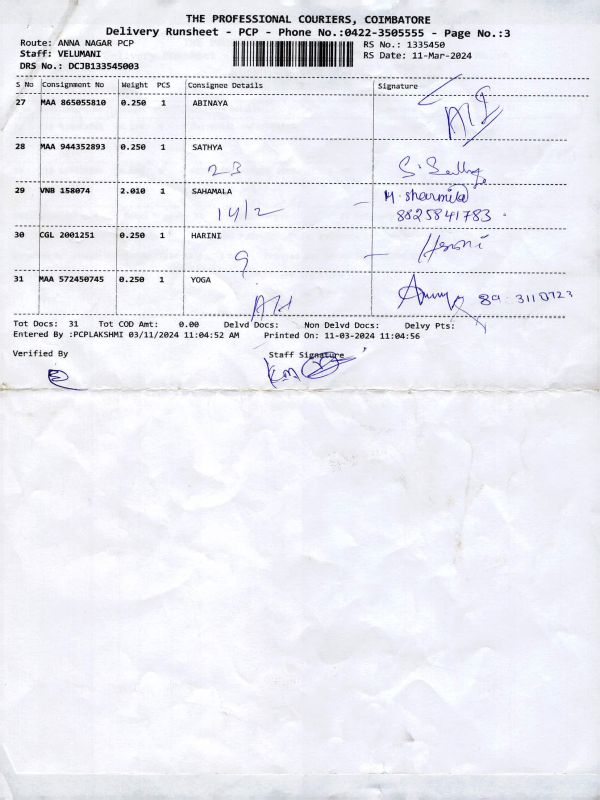 THE PROFESSIONAL COURIERS, COIMBATORE
Delivery Runsheet - PCP - Phone No.:0422-3505555 - Page No.:3
Route: ANNA NAGAR PCP RS No.: 1335450
Staff: VELUMANI RS Date: 11-Mar-2024
DRS No.: DCJB133545003
S No Consignment No Weight PCS Consignee Details Signature
27 MAA 865055810 0.250 1 ABINAYA
28 MAA 944352893 0.250 1 SATHYA
23
29 VNB 158074 2.010 1 SAHAMALA M. sharmila
14/2 8825841783.
30 CGL 2001251 0.250 1 HARINI
9
31 MAA 572450745 0.250 1 YOGA
Tot Docs: 31 Tot COD Amt: 0.00 Delvd Docs: Non Delvd Docs: Delvy Pts:
Entered By :PCPLAKSHMI 03/11/2024 11:04:52 AM Printed On: 11-03-2024 11:04:56
Verified By Staff Signature